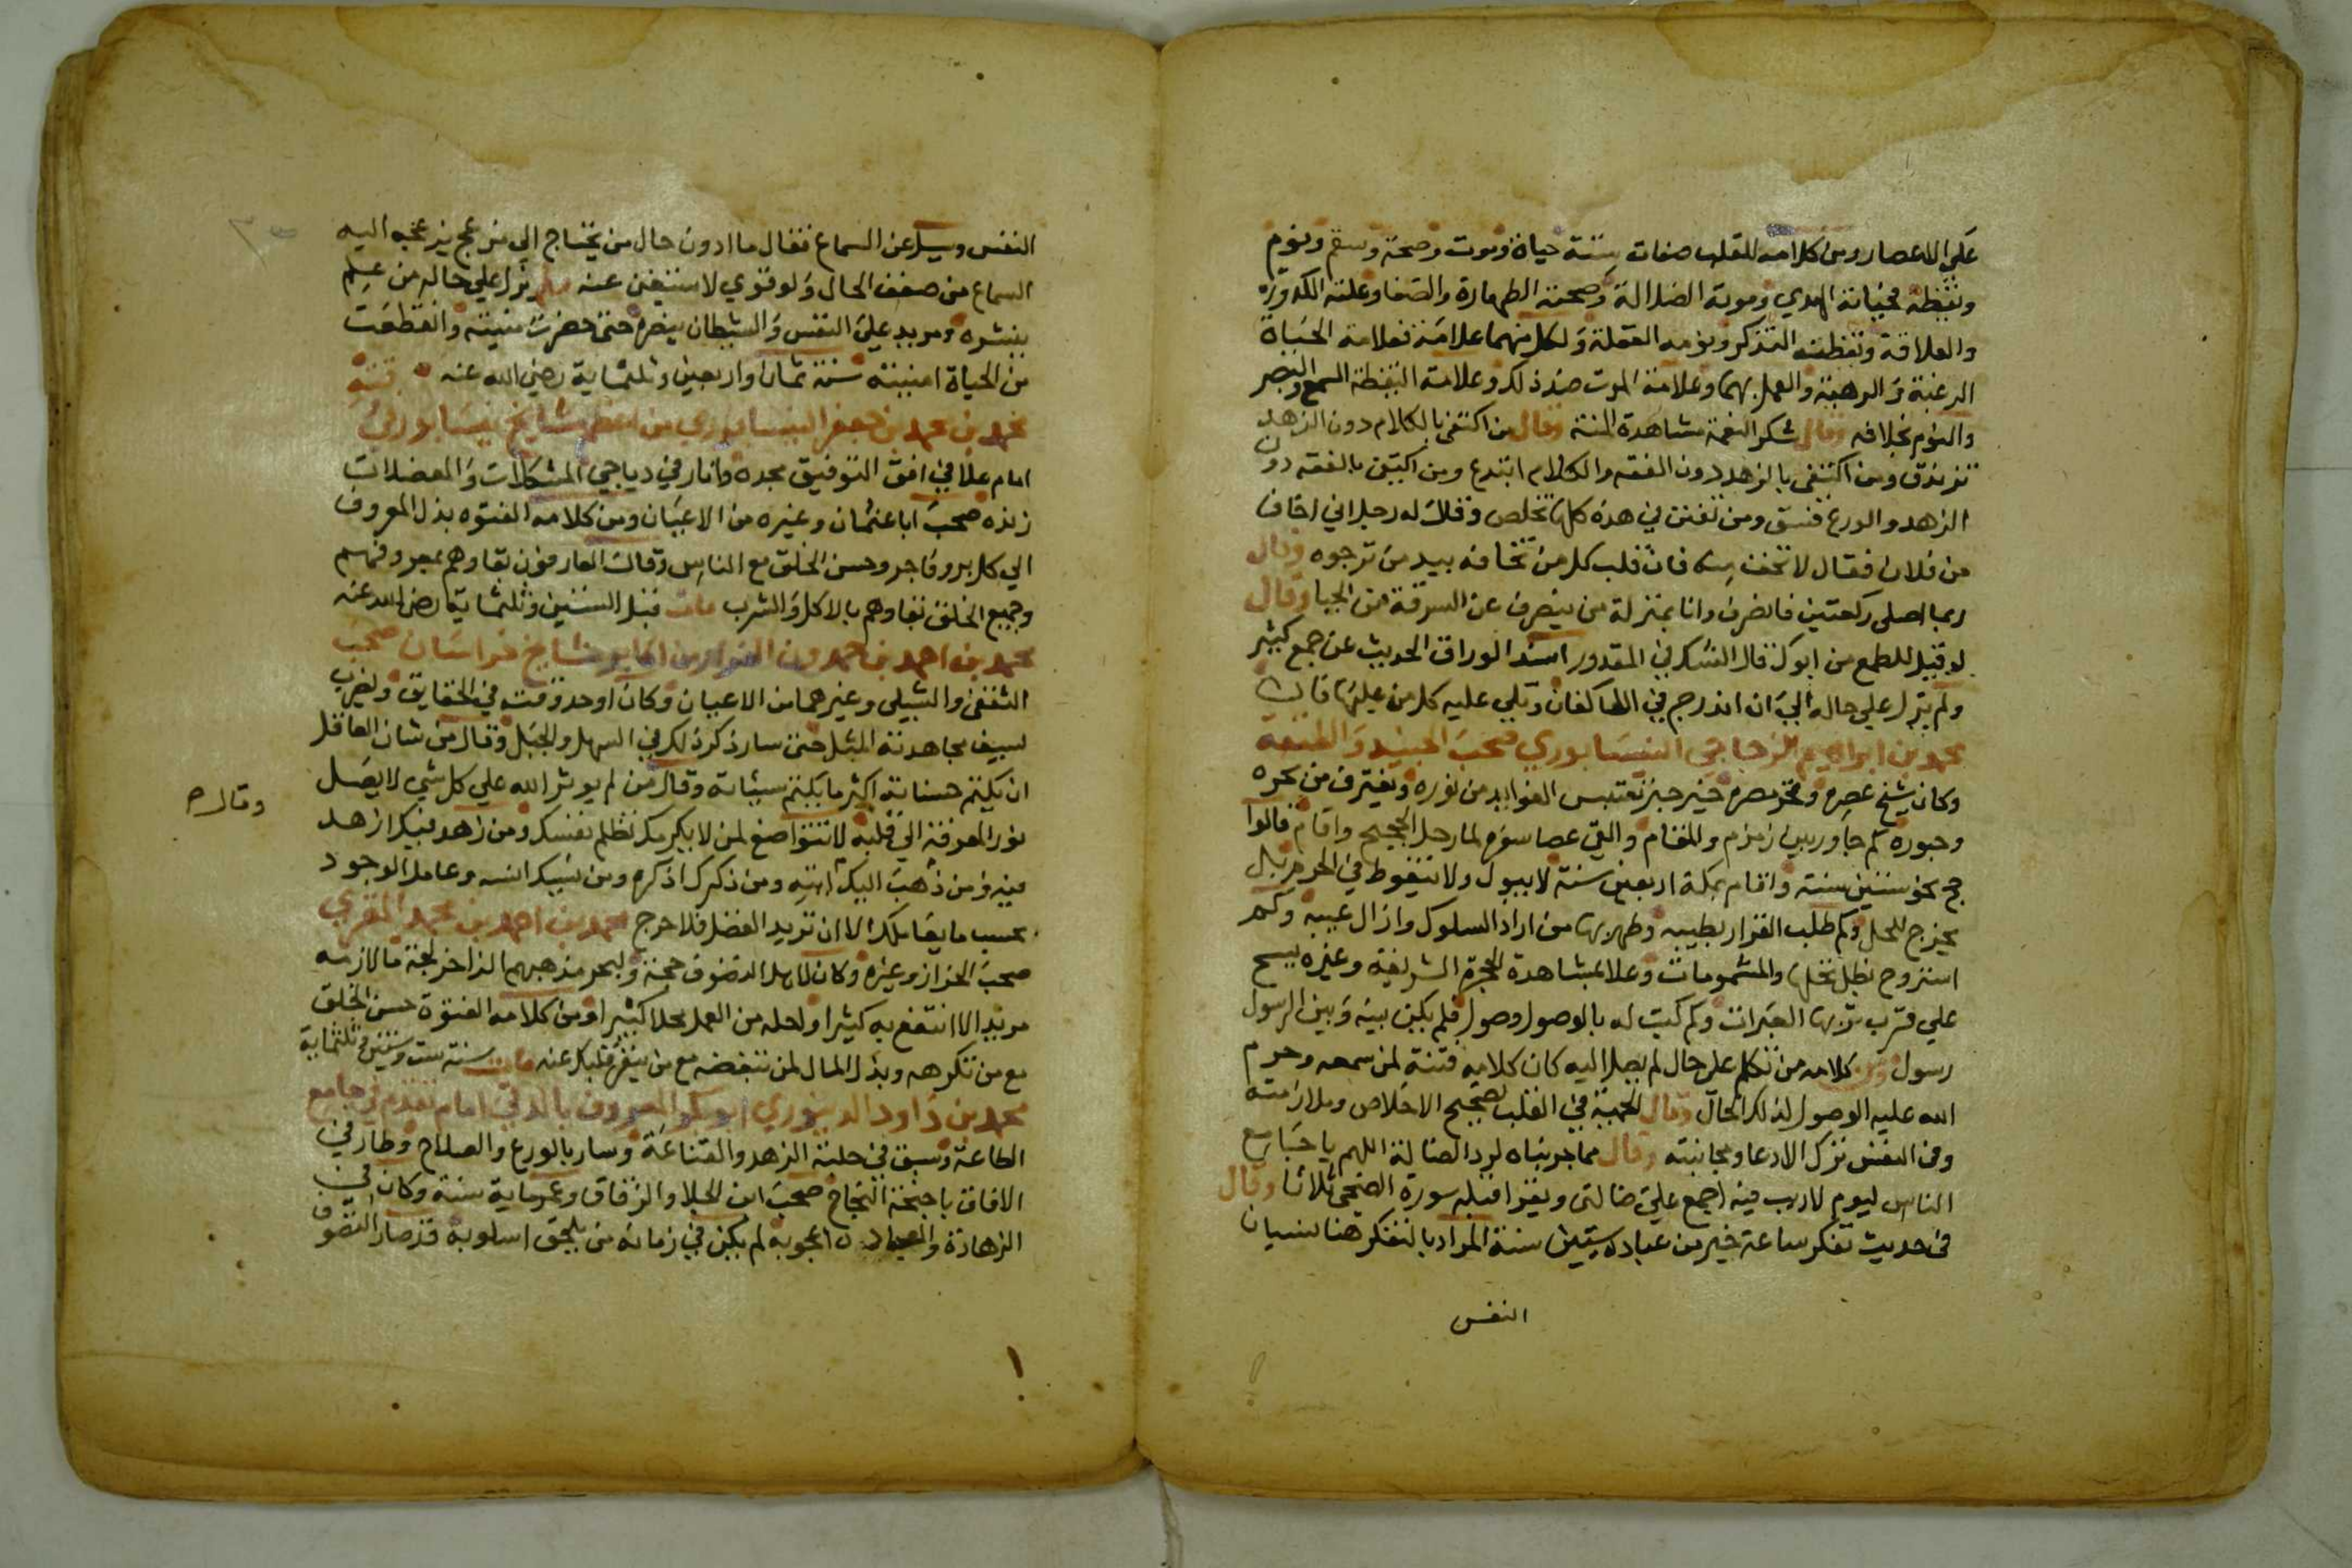 على الاعصار ومن كلامه للقلب صفات ستة حياة وموت وصحة وسقم ونوم
ويقظة فحياته الهدي وموته الضلالة وصحته الطهارة والصفا وعلته الكدورة
والعلاقة ويقظته التذكر ونومه الغفلة ولكل منهما علامة فعلامة الحياة
الرغبة والرهبة والعمل بهما وعلامة الموت ضد ذلك وعلامة اليقظة السمع والبصر
والنوم بخلافه وقال شكر النعمة مشاهدة المنة وقال من اكتفى بالكلام دون الزهد
تزندق ومن اكتفى بالزهد دون الفقه والكلام ابتدع ومن اكتفى بالفقه دون
الزهد والورع فسق ومن تفنن في هذه كلها تخلص وقال له رجل اني اخاف
من فلان فقال لا تخف منه فان قلب كل من تخافه بيد من ترجوه وقال
ربما اصلى ركعتين فانصرف وانا بمنزلة من ينصرف عن السرقة من الحيا وقال
لو قيل للطمع من ابوك قال الشك في المقدور اسند الوراق الحديث عن جمع كثير
ولم يزل على حاله الى ان اندرج في الاكفان وبكي عليه كل من عليها فان
محمد بن ابراهيم الزجاجي النيسابوري صحب الجنيد والطبقة
وكان شيخ عصره وفخر مصره خير حبر تقتبس الفوايد من نوره ويغترف من بحره
وحبوره كم جاور بين زمزم والمقام والقى عصا سوم لما رحل الحجيج واقام قالوا
حج نحو ستين سنة واقام بمكة اربعين سنة لا يبول ولا يتغوط في الحرم بل
يخرج للحل وكم طلب القرار بطيبه وطهر بها من اراد السلوك وازال عيبه وكم
استروح بظل نخلها والمشمومات وعلا بمشاهدة الحجرة الشريفة وغيره يسح
على قرب تربها العبرات وكم كتب له بالوصول وصول فلم يكن بينه وبين الرسول
رسول ومن كلامه من تكلم على حال لم يصل اليه كان كلامه فتنة لمن سمعه وحرم
الله عليه الوصول لذلك الحال وقال المحبة في القلب تصحيح الاخلاص وملازمته
وفي النفس ترك الادعا ومجانبته وقال مما جربناه لرد الضالة اللهم يا جامع
الناس ليوم لا ريب فيه اجمع علي ضالتى ويقرا قبله سورة الضحى ثلاثا وقال
في حديث تفكر ساعة خير من عبادة ستين سنة المراد بالتفكر هنا نسيان
النفس
النفس وسيل عن السماع فقال ما ادون حال من يحتاج الى مزعج يزعجه اليه
السماع من ضعف الحال ولو قوي لاستغنى عنه ولم يزل على حاله من علم
ينشره ومريد على النفس والشيطان ينصره حتى حضرت منيته وانقطعت
من الحياة امنيته سنة ثمان واربعين وثلثماية رضي الله عنه
محمد بن محمد بن جعفر النيسابوري من اعظم مشايخ نيسابور في
امام علا في افق التوفيق مجده وانار في دياجي المشكلات والمعضلات
زنده صحب ابا عثمان وغيره من الاعيان ومن كلامه الفتوه بذل المعروف
الي كل بر وفاجر وحسن الخلق مع الناس وقال العارفون بقاوهم بمعروفهم
وجميع الخلق بقاوهم بالاكل والشرب مات قبل الستين وثلثماية رضى الله عنه
محمد بن احمد بن حمدون الفرا من اكابر مشايخ خراسان صحب
الثقفى والشبلى وغيرهما من الاعيان وكان اوحد وقته في الحقايق ولضرب
لسيف مجاهدته المثل حتى سار ذكر ذلك في السهل والجبل وقال من شان العاقل
ان يكتم حسناته اكثر ما يكتم سيئاته وقال من لم يوثر الله علي كل شي لا يصل
وقال ح
نور المعرفة الى قلبه لا تتواضع لمن لا يكرمك تظلم نفسك ومن زهد فيك ازهد
فيه ومن ذهب اليك اته ومن ذكرك اذكره ومن نسيك انسه وعامل الوجود
بحسب ما يعاملك الا ان تريد الفضل فلا حرج محمد بن احمد بن محمد المقري
صحب الخراز وغيره وكان لاهل التصوف حجة ولبحر مذهبهم الزاخر لجة ما لازمه
مريد الا انتفع به كثيرا وحله من العمل محلا كبيرا ومن كلامه الفتوة حسن الخلق
مع من تكرهه وبذل المال لمن تبغضه مع من ينفر قلبك عنه مات سنة ست وستين وثلثماية
محمد بن داود الدينوري ابو بكر المعروف بالدقي امام تقدم في جامع
الطاعة وسبق في حلبة الزهد والقناعة وسار بالورع والصلاح وطار في
الافاق باجنحة النجاح صحب ابن الجلا والزقاق وعمر ماية سنة وكان في
الزهادة والعبادة اعجوبة لم يكن في زمانه من يلحق اسلوبه قد صار التصوف